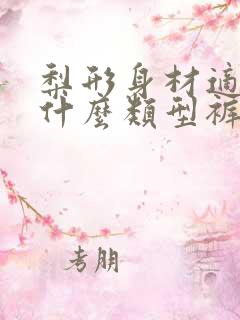 梨形身材適
什麼類型褲
考朋